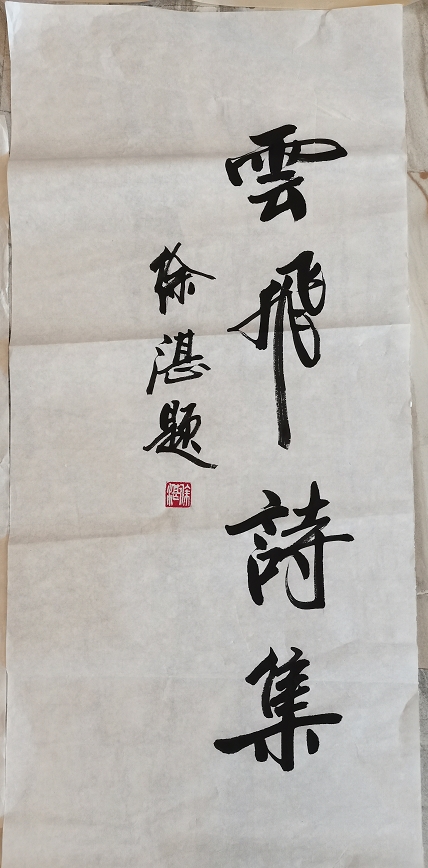 雲飛詩集
徐湛题
徐湛